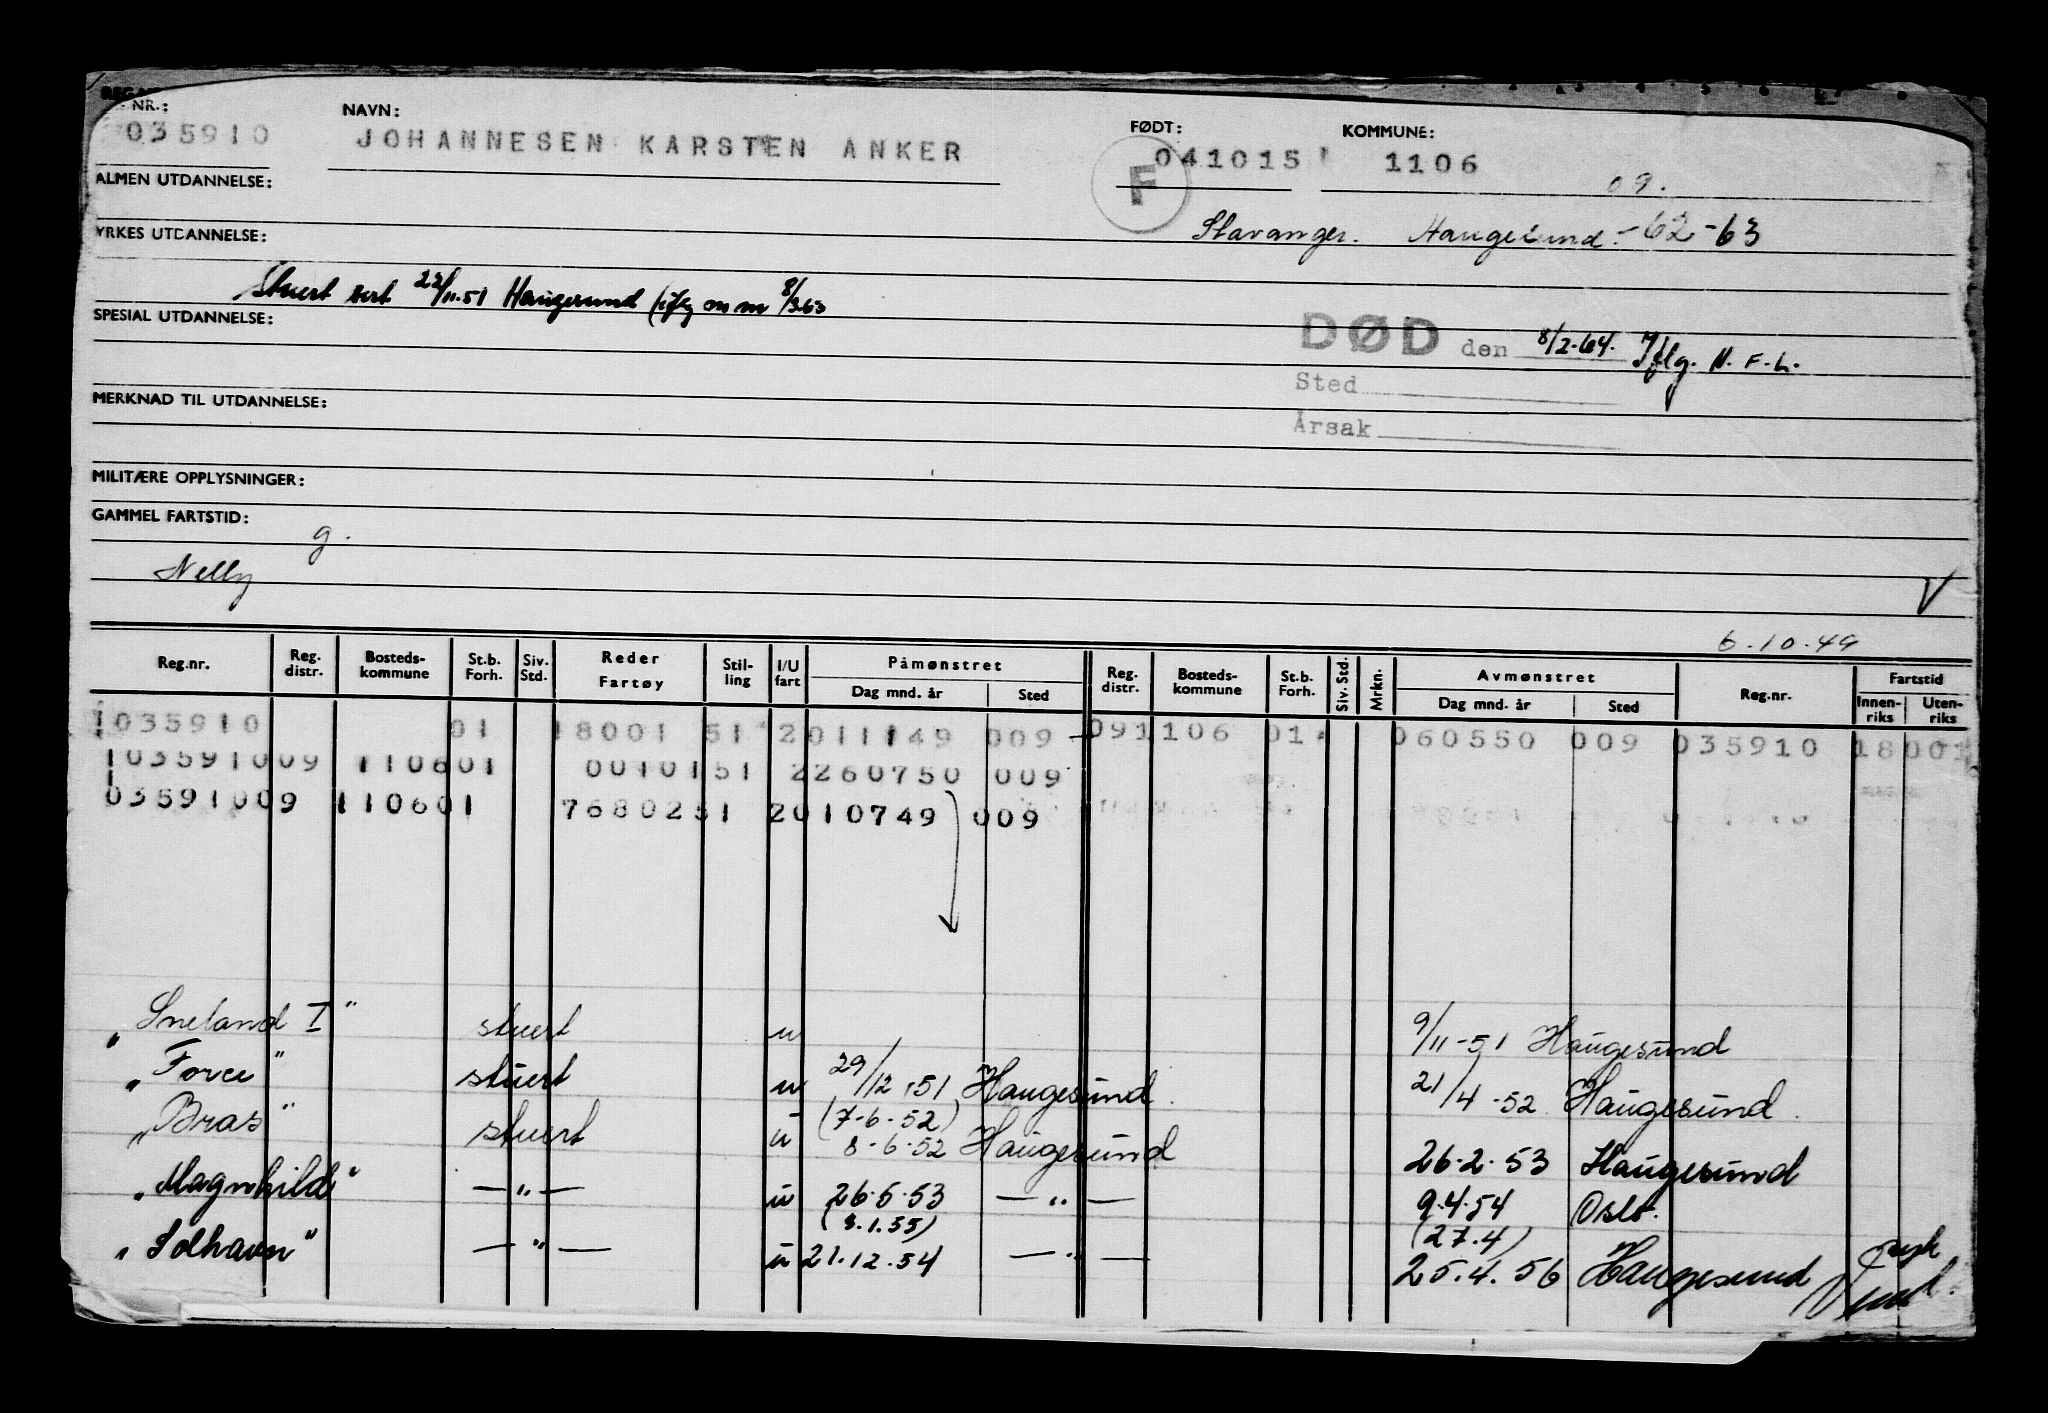 REG.NR.:
NR.: NAVN: FØDT: KOMMUNE:
035910 JOHANNESEN KARSTEN ANKER 041015 1106
F
09.
ALMEN UTDANNELSE:
Stavanger. Haugesund. -62-63
YRKES UTDANNELSE:
Stuert sert 22/11.51 Haugesund
SPESIAL UTDANNELSE:
DØD den 8/2.64. Iflg. N.F.L.
Sted
Årsak
MERKNAD TIL UTDANNELSE:
MILITÆRE OPPLYSNINGER:
GAMMEL FARTSTID:
g.
Nelly
V
6.10.49
Reg.nr. Reg. distr. Bosteds- kommune St.b. Forh. Siv. Std. Reder Fartøy Stil- ling I/U fart Påmønstret Dag mnd. år Sted Reg. distr. Bosteds- kommune St.b. Forh. Siv. Std. Mrkn. Avmønstret Dag mnd. år Sted Reg.nr. Fartstid Innen- riks Uten- riks
035910 01 18001 51 2011149 009 091106 01 060550 009 035910 18001
03591009 110601 0010151 2260750 009
03591009 110601 7680251 2010749 009
"Sneland I" stuert u 9/11-51 Haugesund
"Force" stuert u 29/12.51 Haugesund. 21/4.52 Haugesund.
"Bras" stuert u (7-6.52) 8.6.52 Haugesund 26.2.53 Haugesund
"Magnhild" —"— u 26.5.53 —"— 9.4.54 Oslo.
"Solhavn" —"— u (3.1.55) 21.12.54 —"— (27.4) 25.4.56 Haugesund